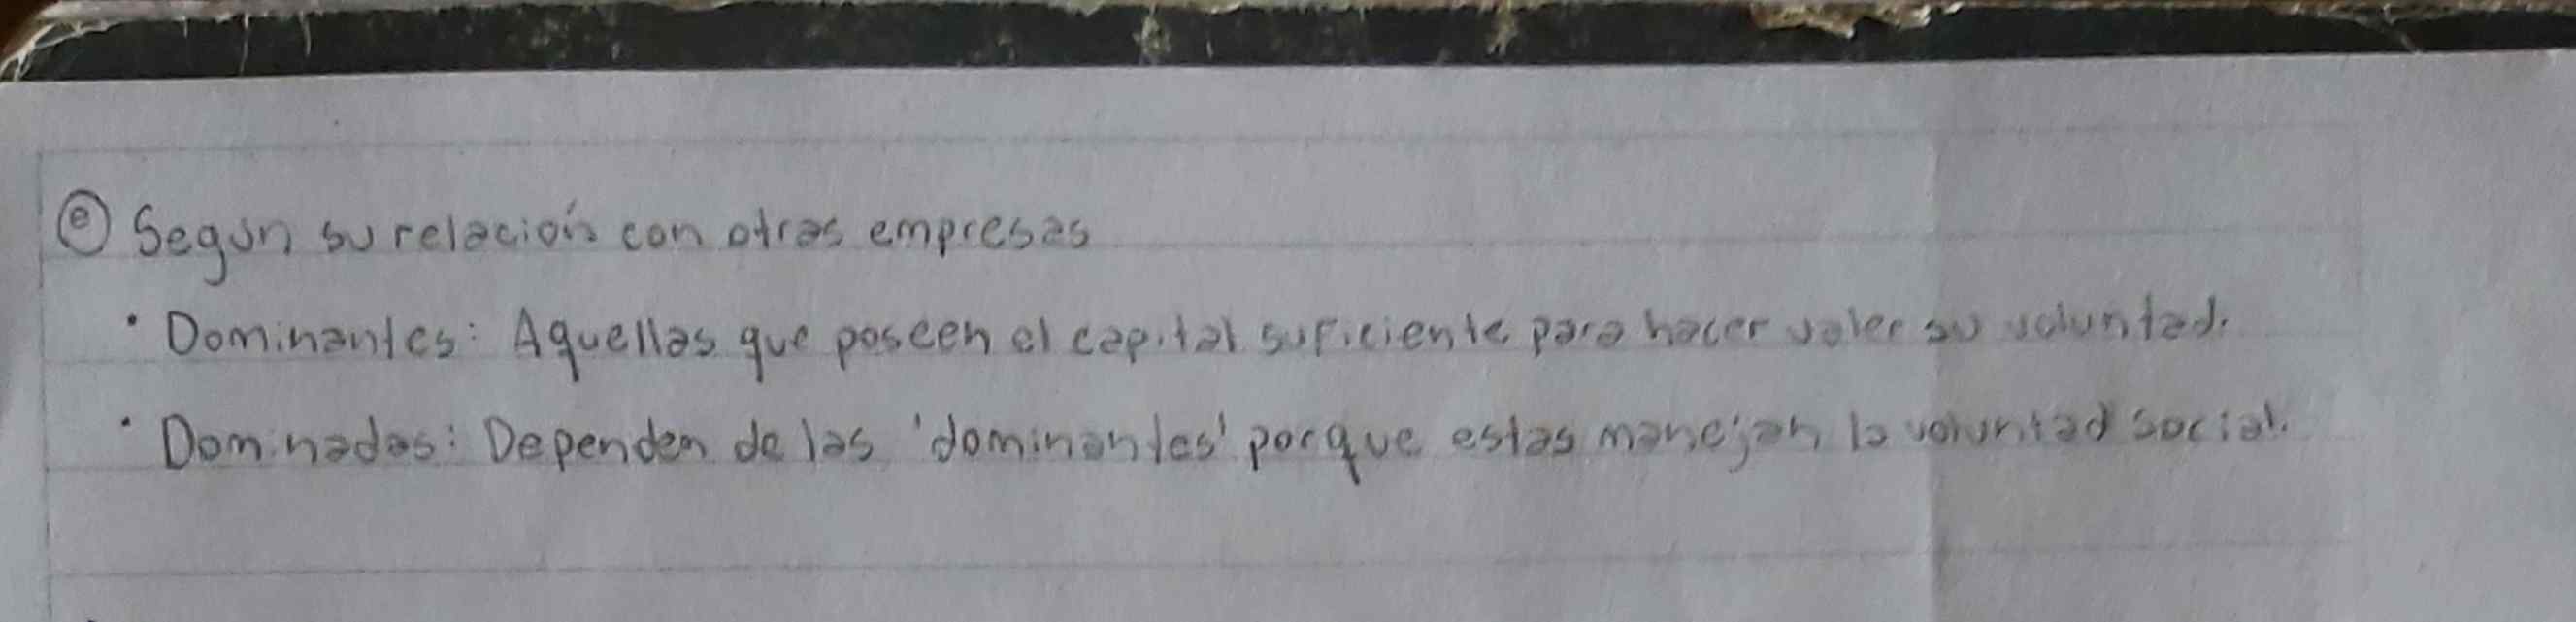 ⓔ Segun su relación con otras empresas
• Dominantes: Aquellas que poseen el capital suficiente para hacer valer su voluntad.
• Dominadas: Dependen de las 'dominantes' porque estas manejan la voluntad social.